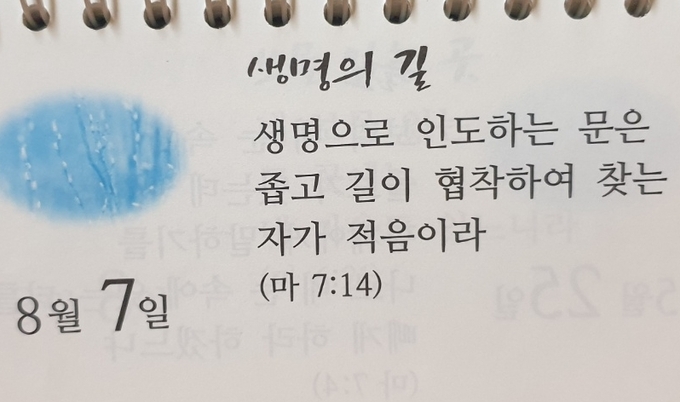 생명의 길
생명으로 인도하는 문은
좁고 길이 협착하여 찾는
자가 적음이라
(마 7:14)
8월 7일